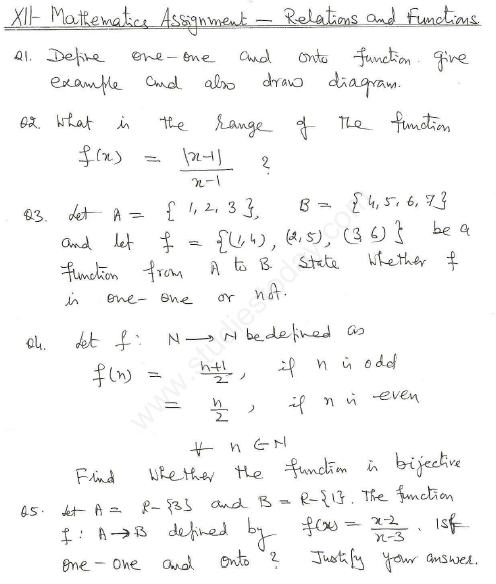 XII - Mathematics Assignment - Relations and Functions
Q1. Define one-one and onto function. give
example and also draw diagram.
Q2. What is the range of the function
f(x) = |x-1| / x-1 ?
Q3. Let A = { 1, 2, 3 }, B = { 4, 5, 6, 7 }
and let f = {(1,4), (2,5), (3,6)} be a
function from A to B. State whether f
is one-one or not.
Q4. Let f: N → N be defined as
f(n) = n+1/2, if n is odd
= n/2, if n is even
∀ n ∈ N
Find whether the function is bijective
Q5. Let A = R-{3} and B = R-{1}. The function
f: A→B defined by f(x) = x-2/x-3. Is f
one-one and onto? Justify your answer.
www.studiestoday.com